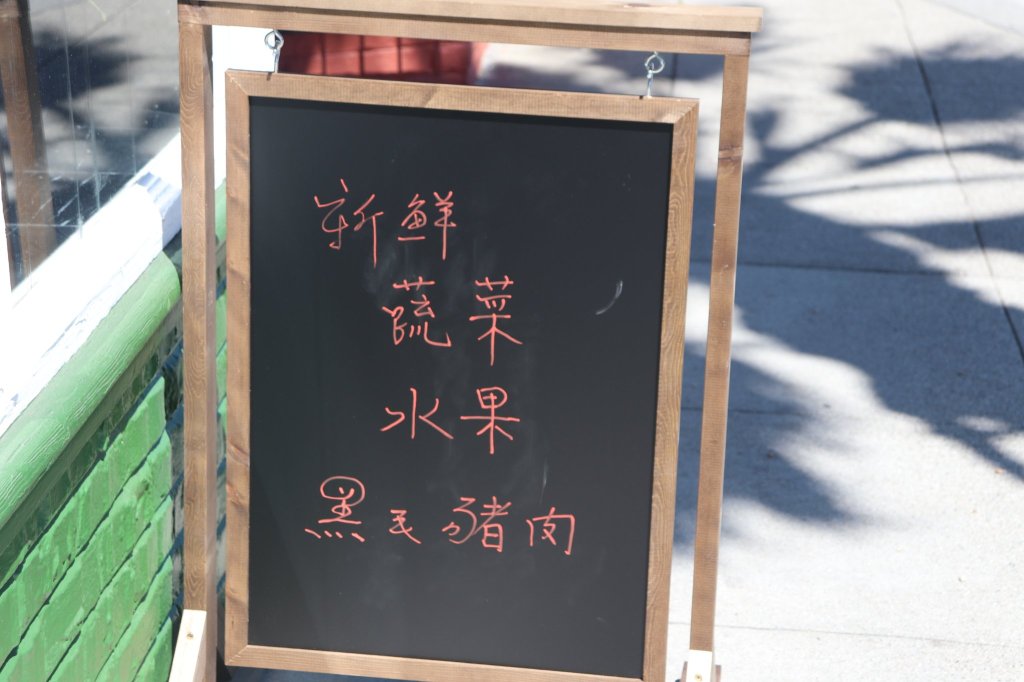 新鮮
蔬菜
水果
黑毛豬肉